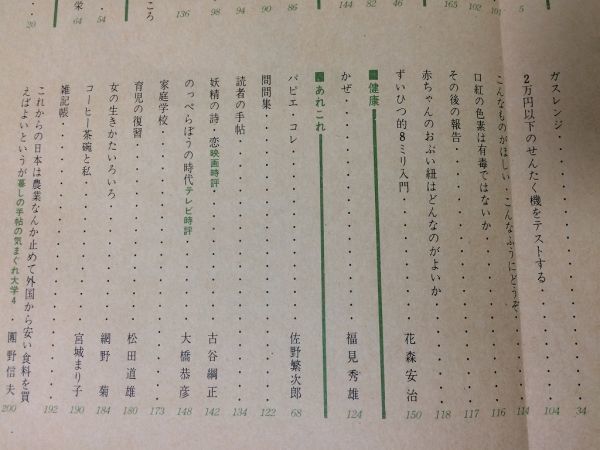 5
101
102
165
46
82
144
86
90
94
98
136
ころ
54
64
栄
20
ガスレンジ 34
2万円以下のせんたく機をテストする 104
こんなものがほしい・こんなふうにどうぞ 114
口紅の色素は有毒ではないか 116
その後の報告 117
赤ちゃんのおぶい紐はどんなのがよいか 118
ずいひつ的8ミリ入門 花森安治 150
健康
かぜ 福見秀雄 124
あれこれ
パピエ・コレ 佐野繁次郎 68
問問集 122
読者の手帖 134
妖精の詩・恋 映画時評 古谷綱正 142
のっぺらぼうの時代 テレビ時評 大橋恭彦 148
家庭学校 173
育児の復習 松田道雄 180
女の生きかたいろいろ 網野菊 184
コーヒー茶碗と私 宮城まり子 190
雑記帳 192
これからの日本は農業なんか止めて外国から安い食料を買
えばよいというが 暮しの手帖の気まぐれ大学4 團野信夫 200